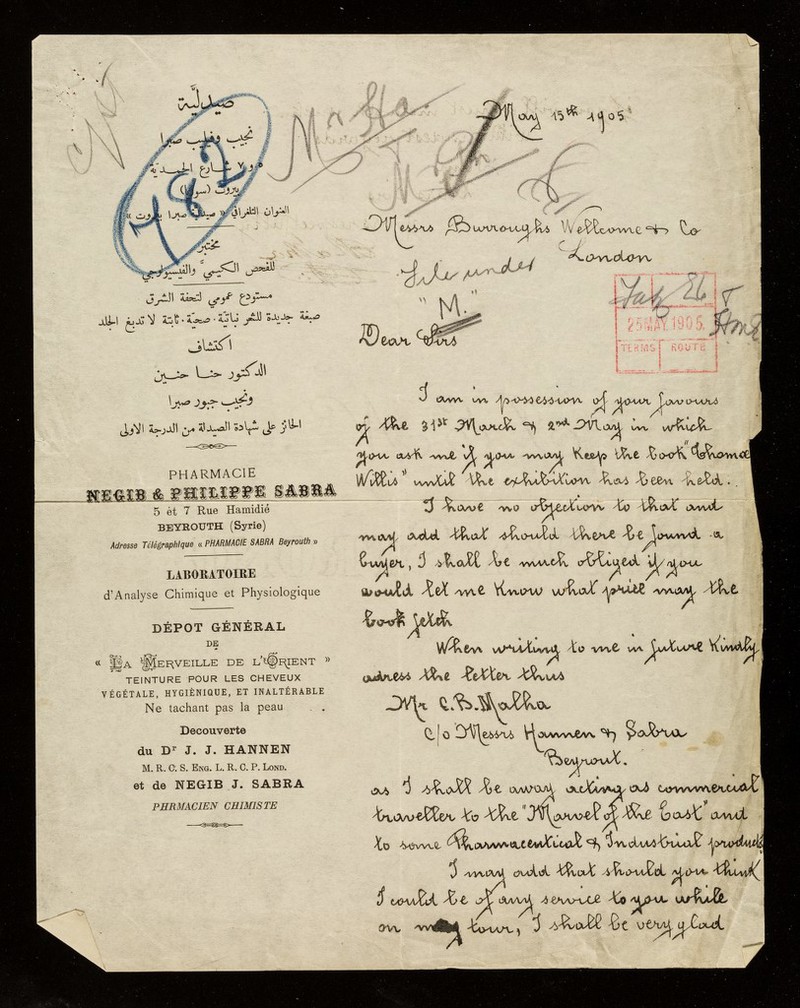 صيدليّة
نجيب وفيليب صبرا
٥ و ٧ شارع الحميدية
بيروت (سوريا)
العنوان التلغرافي « صيدلية صبرا بيروت »
مختبر
للفحص الكيمي والفيسيولوجي
مستودع عمومي لتحفة الشرق
صبغة جديدة للشعر نباتيّة · صحيّة · ثابتة لا تؤذي الجلد
اكتشاف
الدكتور حنا حنين
ونجيب جبور صبرا
PHARMACIE
NEGIB & PHILIPPE SABRA
5 et 7 Rue Hamidié
BEYROUTH (Syrie)
Adresse Télégraphique « PHARMACIE SABRA Beyrouth »
LABORATOIRE
d'Analyse Chimique et Physiologique
DÉPOT GÉNÉRAL
DE
« LA MERVEILLE DE L'ORIENT »
TEINTURE POUR LES CHEVEUX
VÉGÉTALE, HYGIÈNIQUE, ET INALTÉRABLE
Ne tachant pas la peau
Decouverte
du Dr J. J. HANNEN
M. R. C. S. ENG. L. R. C. P. LOND.
et de NEGIB J. SABRA
PHRMACIEN CHIMISTE
782
May 15th 1905
Messrs Burroughs Wellcome & Co
London
File under
"M."
25 MAY 1905
TERMS ROUTE
Dear Sirs
I am in possession of your favours
of the 31st March & 2nd May in which
you ask me if you may keep the book "Thomas
Willis" until the exhibition has been held.
I have no objection to that and
may add that should there be found a
buyer, I shall be much obliged if you
would let me know what price may the
book fetch
When writing to me in future kindly
adress the letter thus
Mr C. B. Malha
c/o Messrs Hannen & Sabra
Beyrout.
as I shall be away acting as commercial
traveller to the "Marvel of the East" and
to some Pharmaceutical & Industrial products
I may add that should you think
I could be of any service to you while
on my tour, I shall be very glad